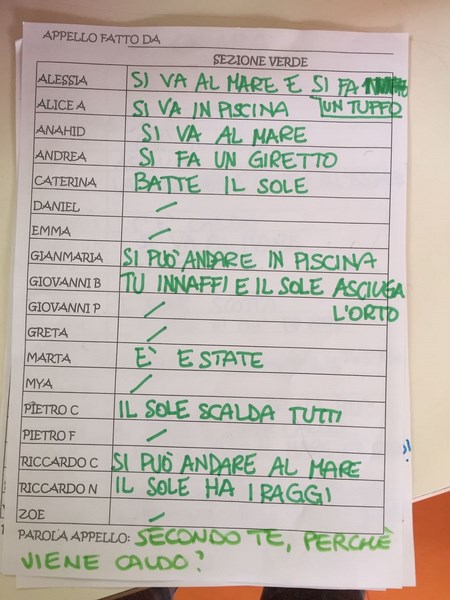 APPELLO FATTO DA
SEZIONE VERDE
ALESSIA SI VA AL MARE E SI FA
UN TUFFO
ALICE A SI VA IN PISCINA
ANAHID SI VA AL MARE
ANDREA SI FA UN GIRETTO
CATERINA BATTE IL SOLE
DANIEL /
EMMA /
GIANMARIA SI PUÒ ANDARE IN PISCINA
GIOVANNI B TU INNAFFI E IL SOLE ASCIUGA
L'ORTO
GIOVANNI P /
GRETA /
MARTA È ESTATE
MYA /
PIETRO C IL SOLE SCALDA TUTTI
PIETRO F /
RICCARDO C SI PUÒ ANDARE AL MARE
RICCARDO N IL SOLE HA I RAGGI
ZOE /
PAROLA APPELLO: SECONDO TE, PERCHÈ
VIENE CALDO?